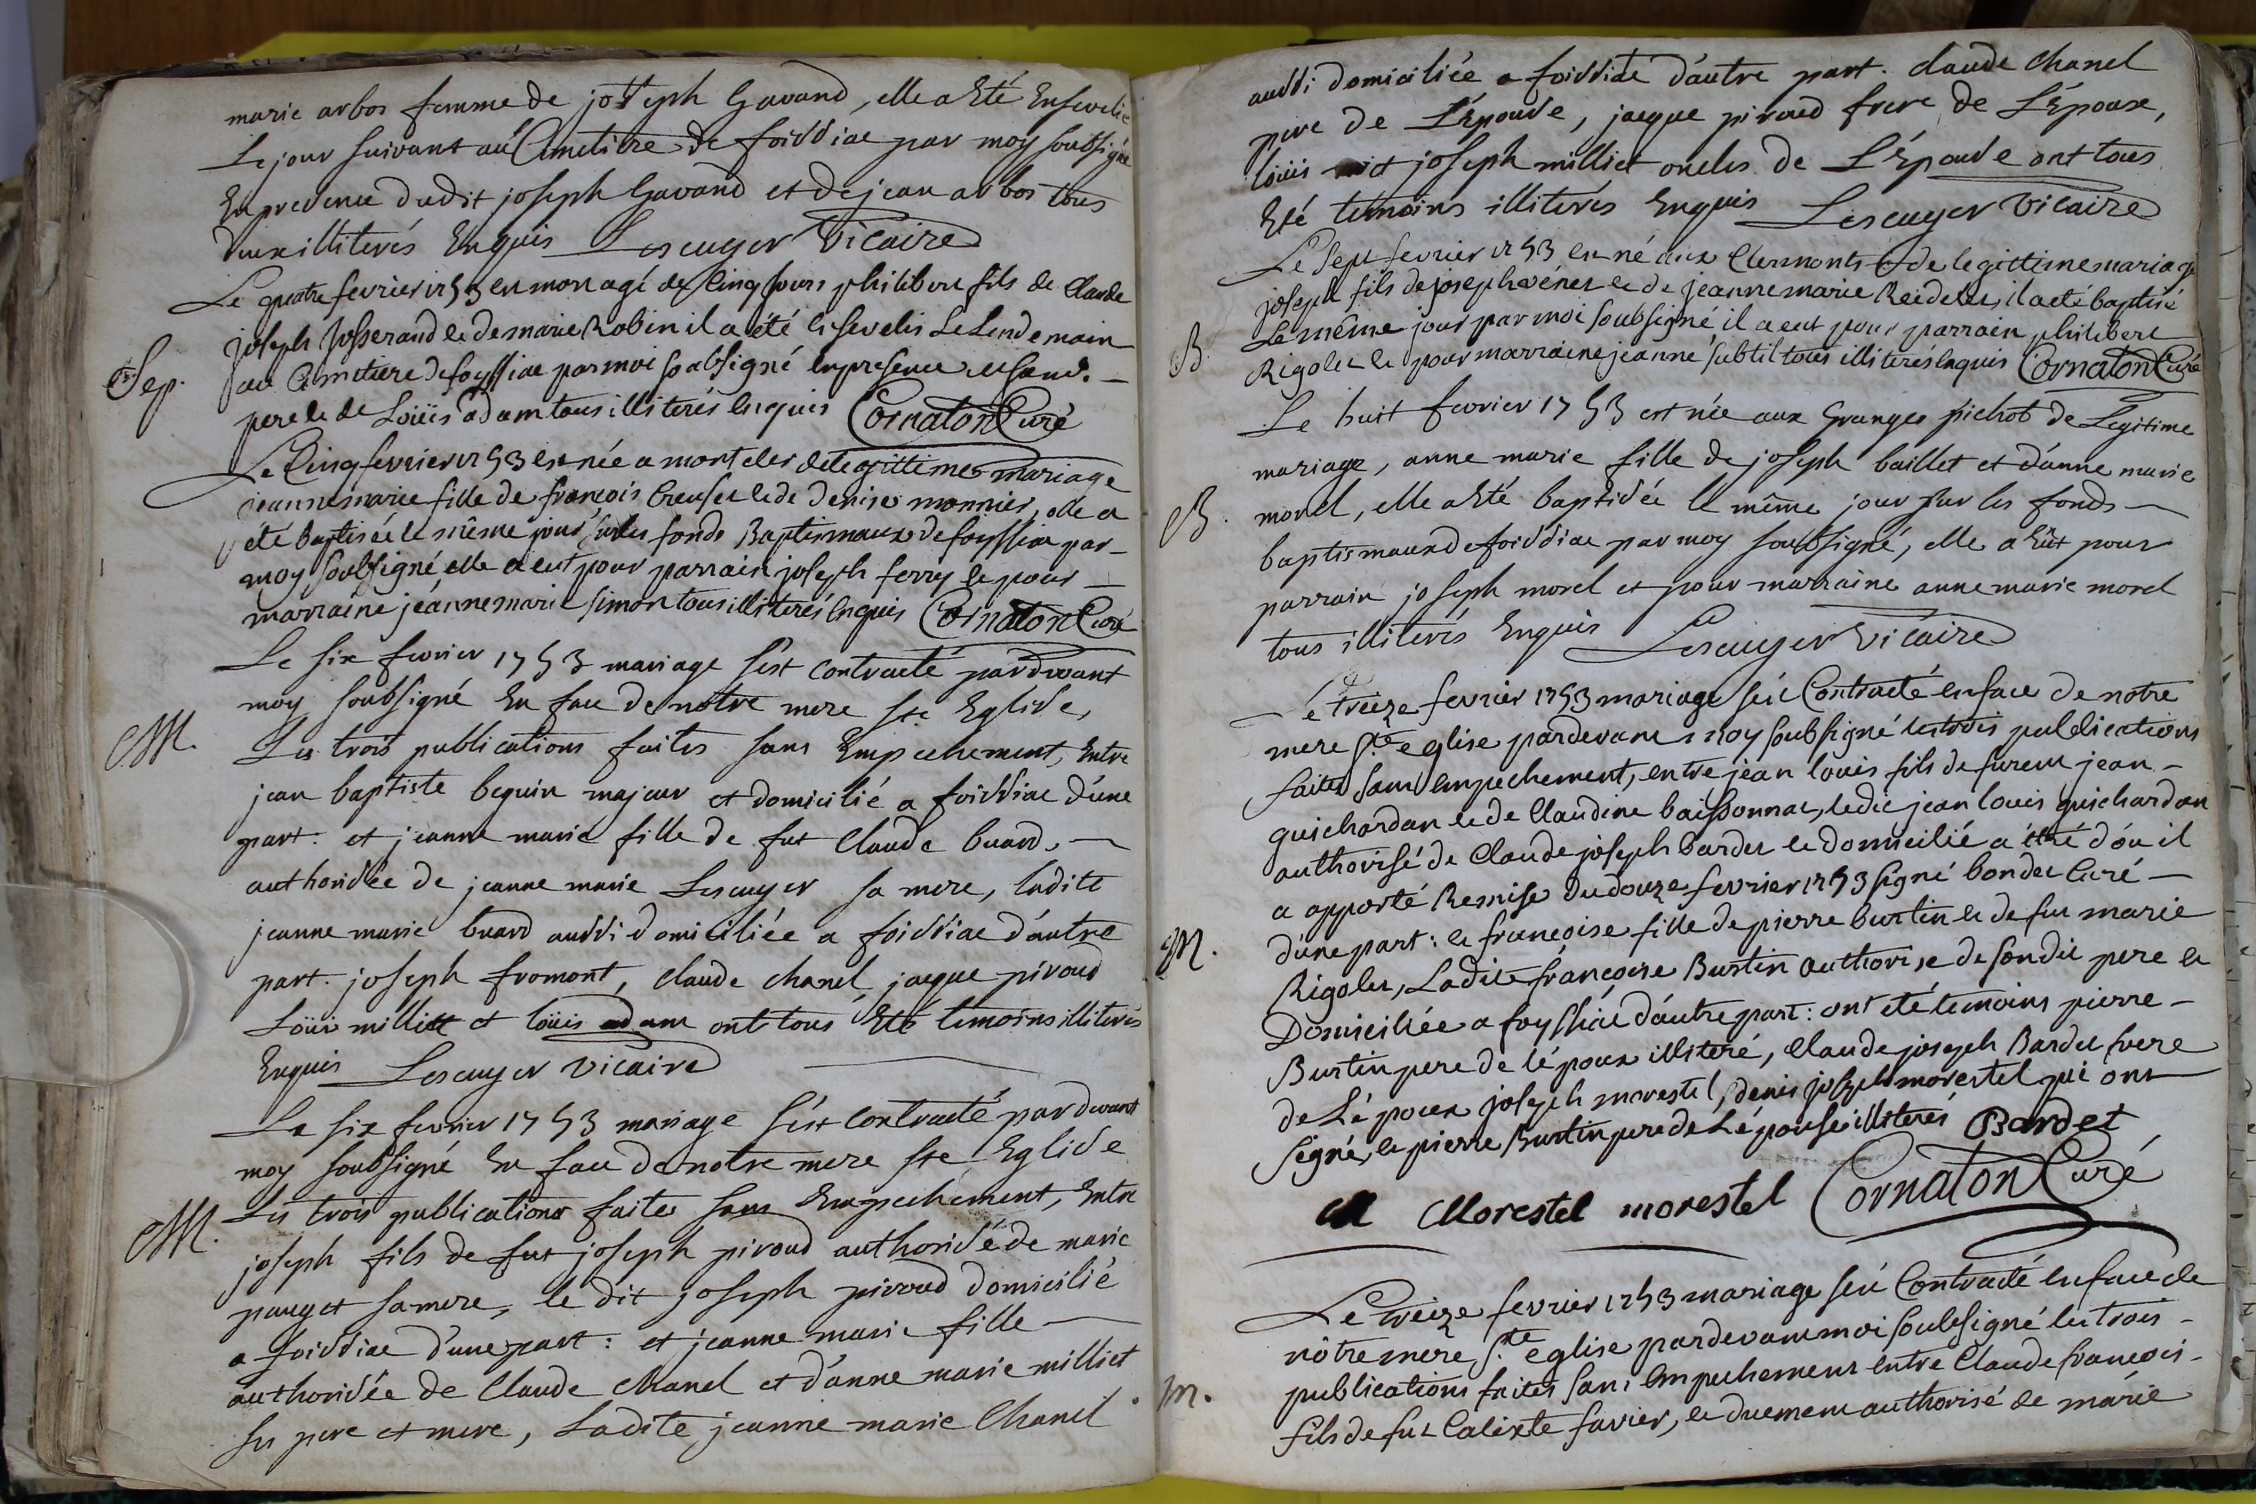 marie arbos femme de joseph Gavand, elle a Eté Ensevelie
Le jour suivant au Cimetiere de foissiac par moy soubsigné
En presence dudit joseph Gavand et de jean arbos tous
deux illiterés Enquis Lescuyer Vicaire
Le quatre fevrier 1753 est mort agé de cinq jours philibert fils de Claude
Joseph Josserand et de marie Robin il a été ensevelis Le Lendemain
Sep. au Cimetiere de foyssiac par moi soubsigné en presence
pere et de Loüis adam tous illiterés enquis Cornaton Curé
Le Cinq fevrier 1753 est née a montcler de legittimes mariage
jeanne marie fille de françois Creuset et de denise monnier, elle a
été baptisée le même jour sur les fonds Baptismaux de foyssiac par
moy soubsigné elle a eut pour parrain joseph ferry et pour
marraine jeanne marie simon tous illiterés enquis Cornaton Curé
Le six fevrier 1753 mariage s'est contracté pardevant
moy soubsigné En face de notre mere ste Eglise,
M. Les trois publications faites sans Empechement, Entre
jean baptiste beguin majeur et domicilié a foissiac d'une
part. et jeanne marie fille de fut Claude buard,
authorisée de jeanne marie Lescuyer sa mere, ladite
jeanne marie buard aussi domiciliée a foissiac d'autre
part. joseph fromont, Claude Chanel jaque piroud
Loüis milliet et loüis adam ont tous Eté temoins illiterés
Enquis Lescuyer vicaire
Le six fevrier 1753 mariage s'est contracté pardevant
moy soubsigné En face de notre mere ste Eglise
M. Les trois publications faites sans Empechement, Entre
joseph fils de fut joseph piroud authorisé de marie
pauget sa mere, le dit joseph piroud domicilié
a foissiac d'une part: et jeanne marie fille
authorisée de Claude Chanel et d'anne marie milliet
ses pere et mere, Ladite jeanne marie Chanel
aussi domiciliée a foissiac d'autre part. claude Chanel
pere de L'Epouse, jaque piroud frere de L'Epoux,
loüis et joseph milliet oncles de L'Epouse ont tous
Eté temoins illiterés Enquis Lescuyer Vicaire
Le sept fevrier 1753 est né aux Clermonts de legittime mariage
joseph fils de joseph vénet et de jeanne marie Reidelet, il a eté baptisé
B. Le même jour par moi soubsigné il a eut pour parrain philibert
Rigolet et pour marraine jeanne subtil tous illiterés enquis Cornaton Curé
Le huit fevrier 1753 est née aux Granges pichot de Legitime
mariage, anne marie fille de joseph baillet et d'anne marie
B. morel, elle a Eté baptisée le même jour sur les fonds
baptismaux de foissiac par moy soubsigné, elle a Eût pour
parrain joseph morel et pour marraine anne marie morel
tous illiterés Enquis Lescuyer Vicaire
Le treize fevrier 1753 mariage s'est Contracté en face de notre
mere ste eglise pardevant moy soubsigné les trois publications
faites sans empechement, entre jean louis fils de furent jean
guichardan et de Claudine baissonnat, ledit jean louis guichardan
authorisé de Claude joseph bardet et domicilié a étré d'ou il
a apporté Remise du douze fevrier 1753 signé bondet Curé
M. d'une part: et françoise fille de pierre burtin et de fut marie
Rigolet, Ladite françoise Burtin authorise de sondit pere et
Domiciliée a foyssiac d'autre part: ont eté temoins pierre
Burtin pere de lépoux illiteré, Claude joseph Bardet frere
de Lépoux joseph morestel, denis joseph morestel qui ont
signé, et pierre Burtin pere de Lépouse illiterés Bardet
Morestel morestel Cornaton Curé
Le treize fevrier 1753 mariage s'est Contracté en face de
nôtre mere ste eglise pardevant moi soubsigné les trois
M. publications faites sans empechement entre Claude françois
fils de fut Calixte favier, et duement authorisé de marie